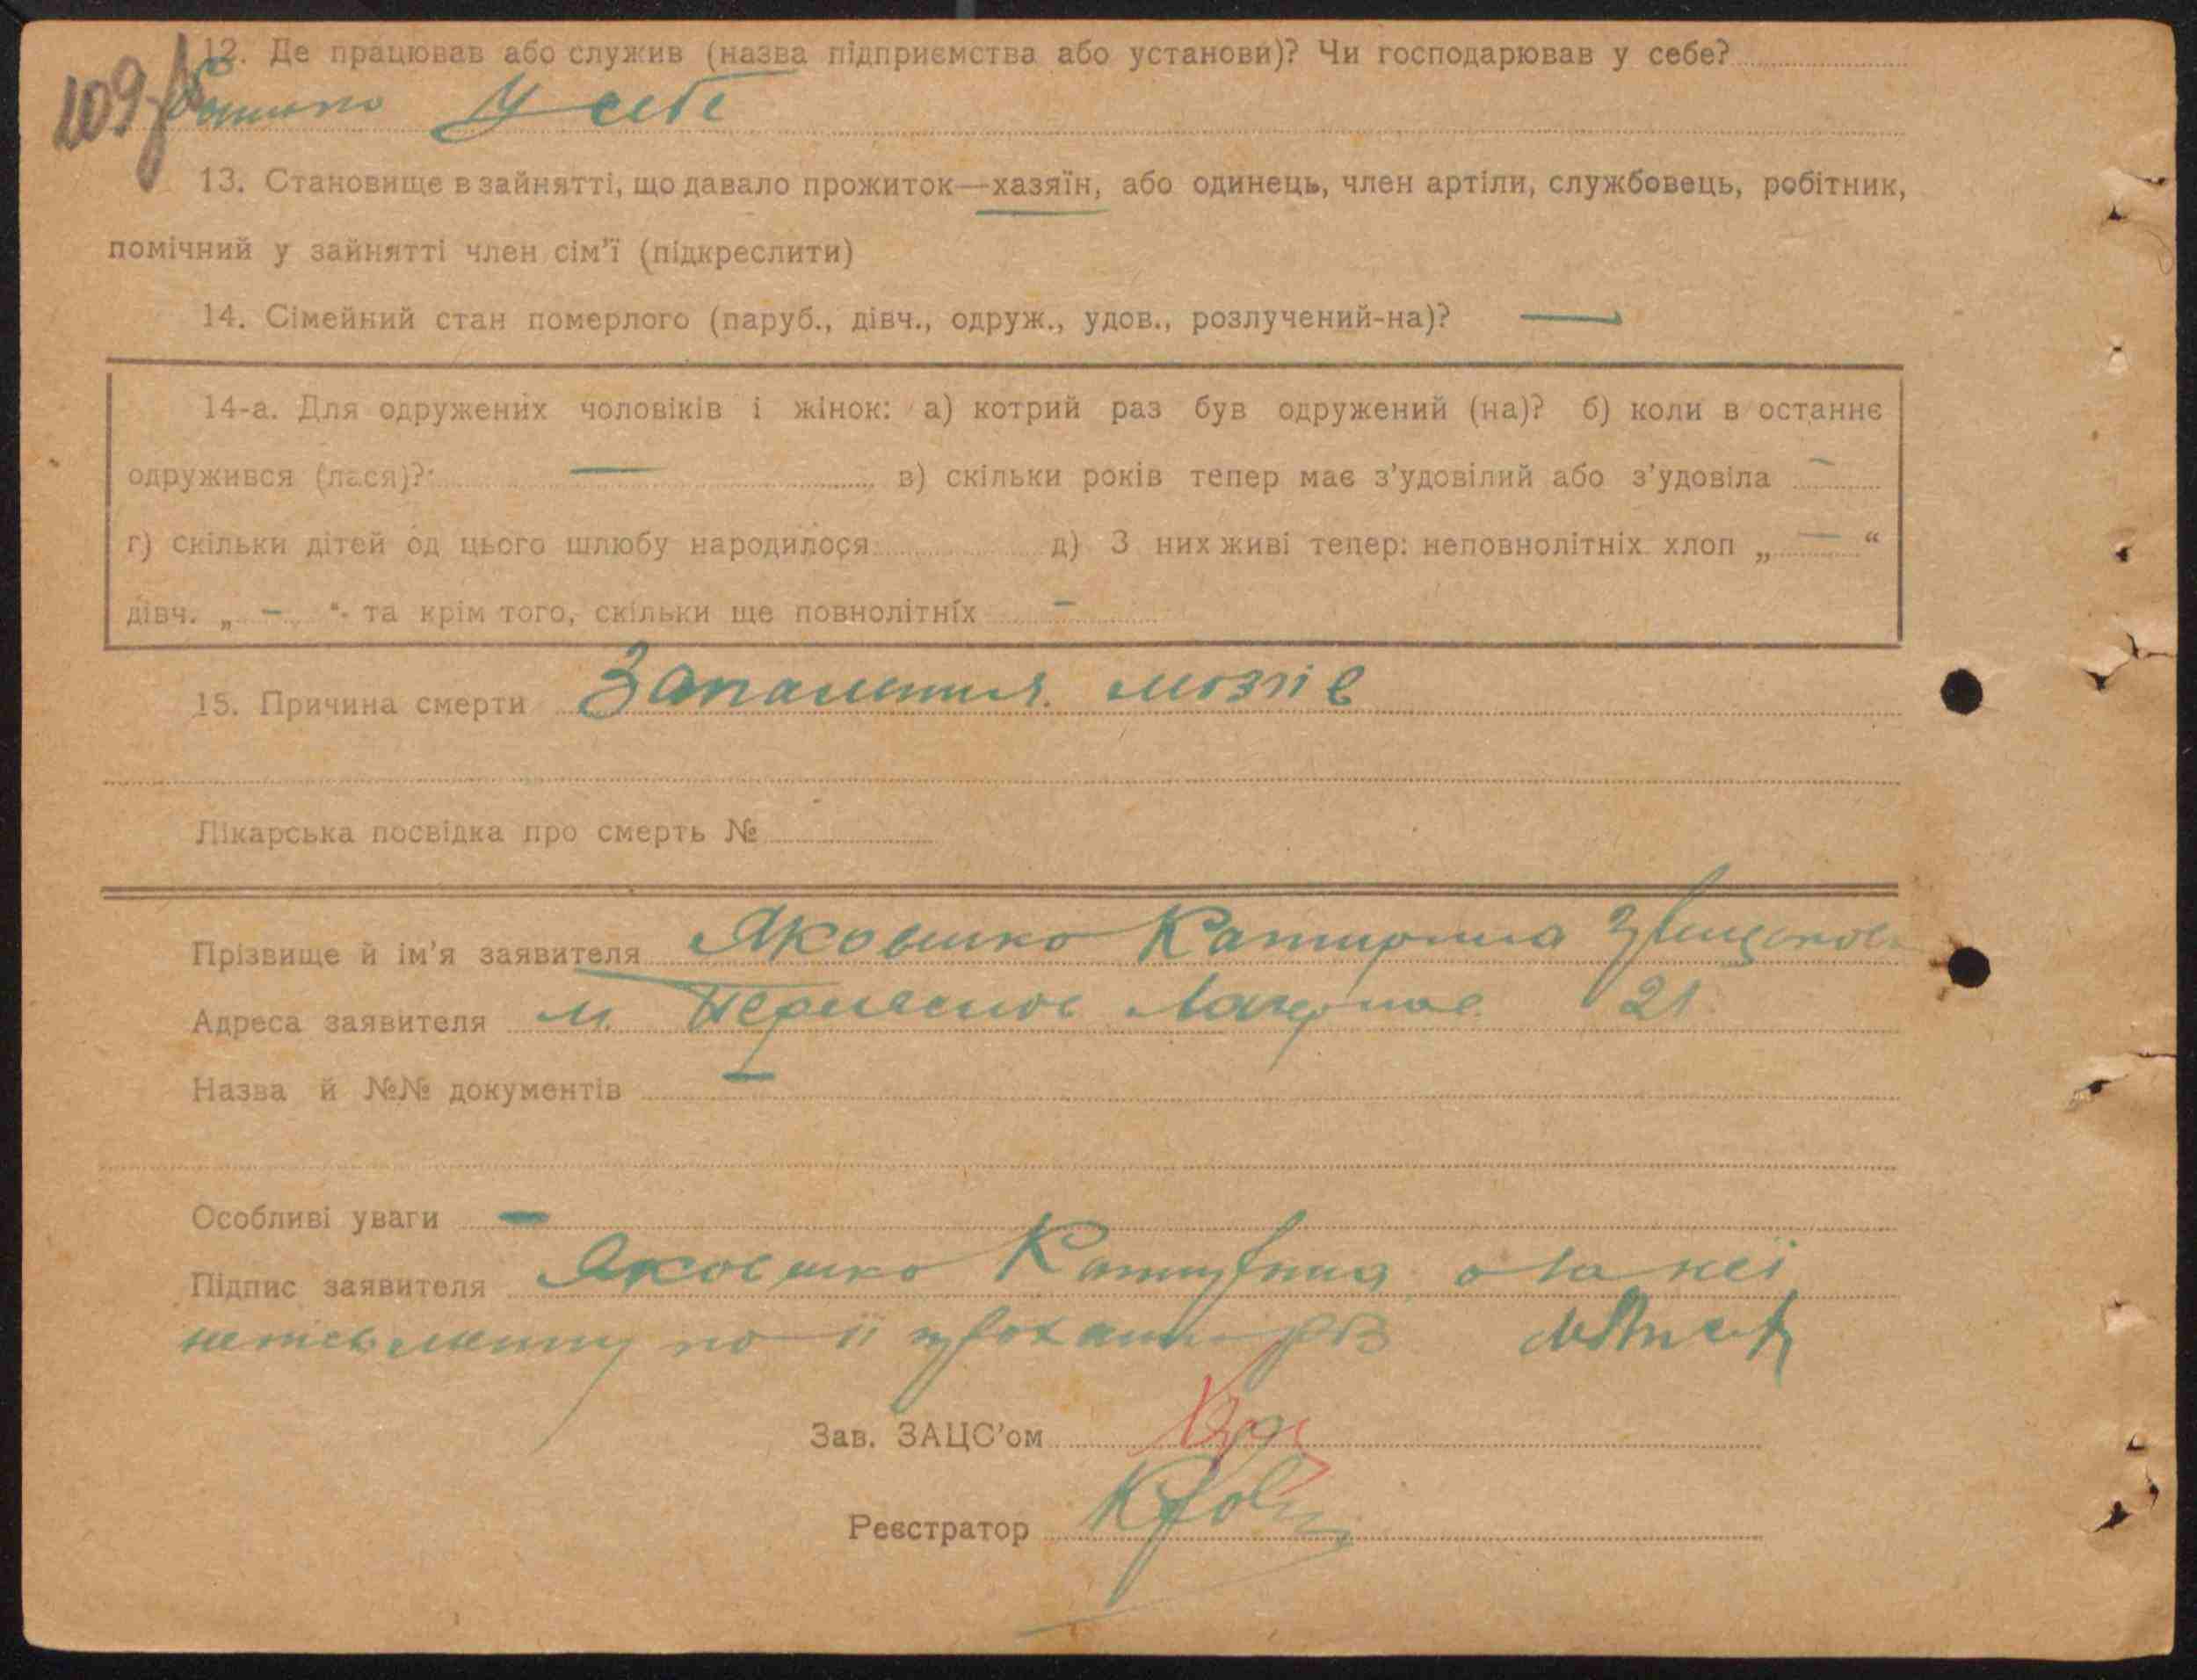 12. Де працював або служив (назва підприємства або установи)? Чи господарював у себе?
109 У себе
13. Становище в зайнятті, що давало прожиток—хазяїн, або одинець, член артіли, службовець, робітник,
помічний у зайнятті член сім'ї (підкреслити)
14. Сімейний стан померлого (паруб., дівч., одруж., удов., розлучений-на)? —
14-а. Для одружених чоловіків і жінок: а) котрий раз був одружений (на)? б) коли в останнє
одружився (лася)? — в) скільки років тепер має з'удовілий або з'удовіла —
г) скільки дітей од цього шлюбу народилося д) З них живі тепер: неповнолітніх хлоп „ — “
дівч. „ — “ та крім того, скільки ще повнолітніх —
15. Причина смерти Запалення мозгів
Лікарська посвідка про смерть №
Прізвище й ім'я заявителя Яковенко Катирина
Адреса заявителя м. 21
Назва й №№ документів —
Особливі уваги —
Підпис заявителя Яковенко Катирина а за неї
по її
Зав. ЗАЦС'ом
Реєстратор